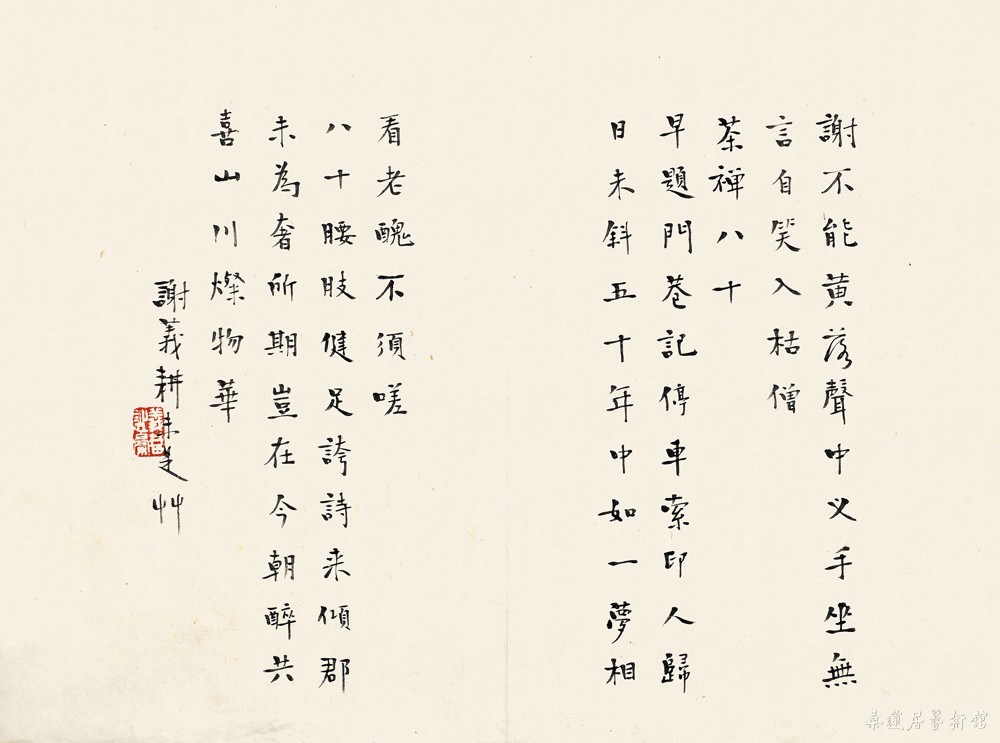 謝不能黃落聲中义手坐無
言自笑入枯僧
茶禪八十
早題門巷記停車索印人歸
日未斜五十年中如一夢相
看老醜不須嗟
八十腰肢健足誇詩来傾郡
未為奢所期豈在今朝醉共
喜山川燦物華
謝義耕未定艸
桑蓮居藝術館